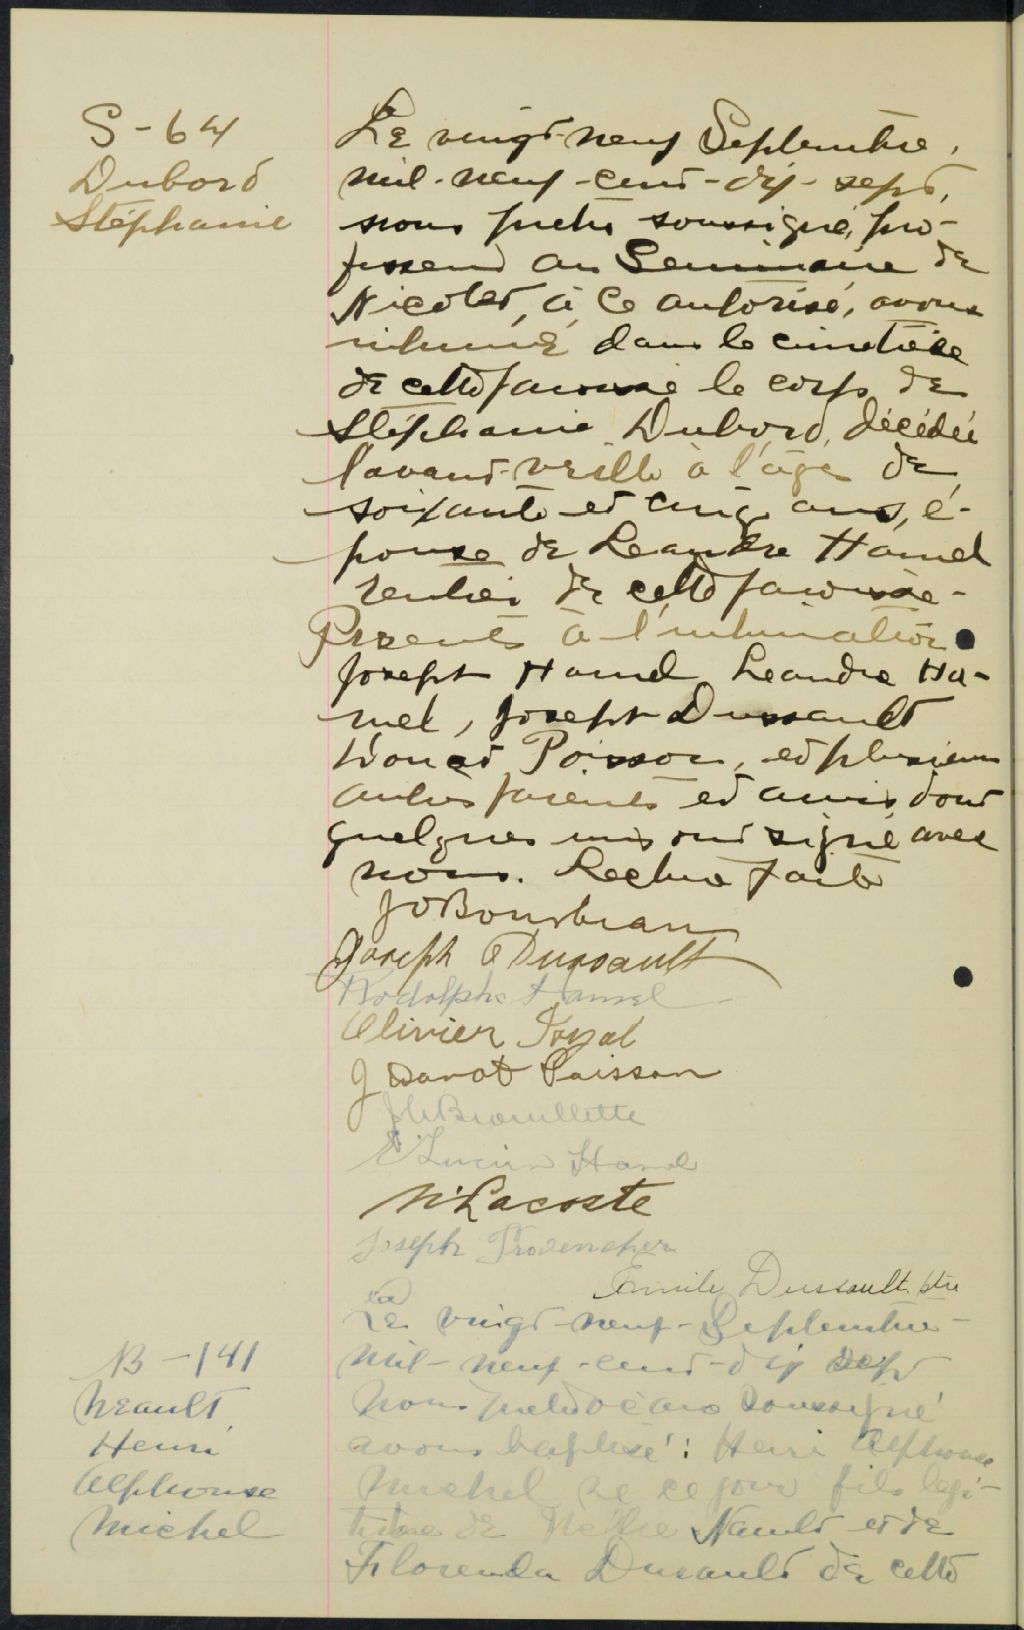 S-64
Dubord
Stéphanie
Le vingt-neuf Septembre,
mil-neuf-cent-dix-sept,
nous prêtre soussigné, pro-
fesseur au Seminaire de
Nicolet, à ce autorisé, avons
inhumé dans le cimetière
de cette paroisse le corps de
Stéphanie Dubord, décédée
l'avant-veille à l'âge de
soixante et cinq ans, é-
pouse de Leandre Hamel
rentier de cette paroisse-
Presents à l'inhumation
Joseph Hamel Leandre Ha-
mel, Joseph Dussault
Donat Poisson, et plusieurs
autres parents et amis dont
quelques uns ont signé avec
nous. Lecture faite
Joseph Dussault
Rodolphe Hamel
Olivier
J Donat Poisson
Brouillette
Lucien Hamel
N. Lacoste
Joseph Provencher
Emile Dussault ptre
B-141
Neault
Henri
Alphonse
Michel
Le vingt-neuf-Septembre-
mil-neuf-cent-dix sept
nous prêtre vicaire soussigné
avons baptisé: Henri Alphonse
Michel né ce jour fils légi-
time de Nault et de
Florenda Dusault de cette